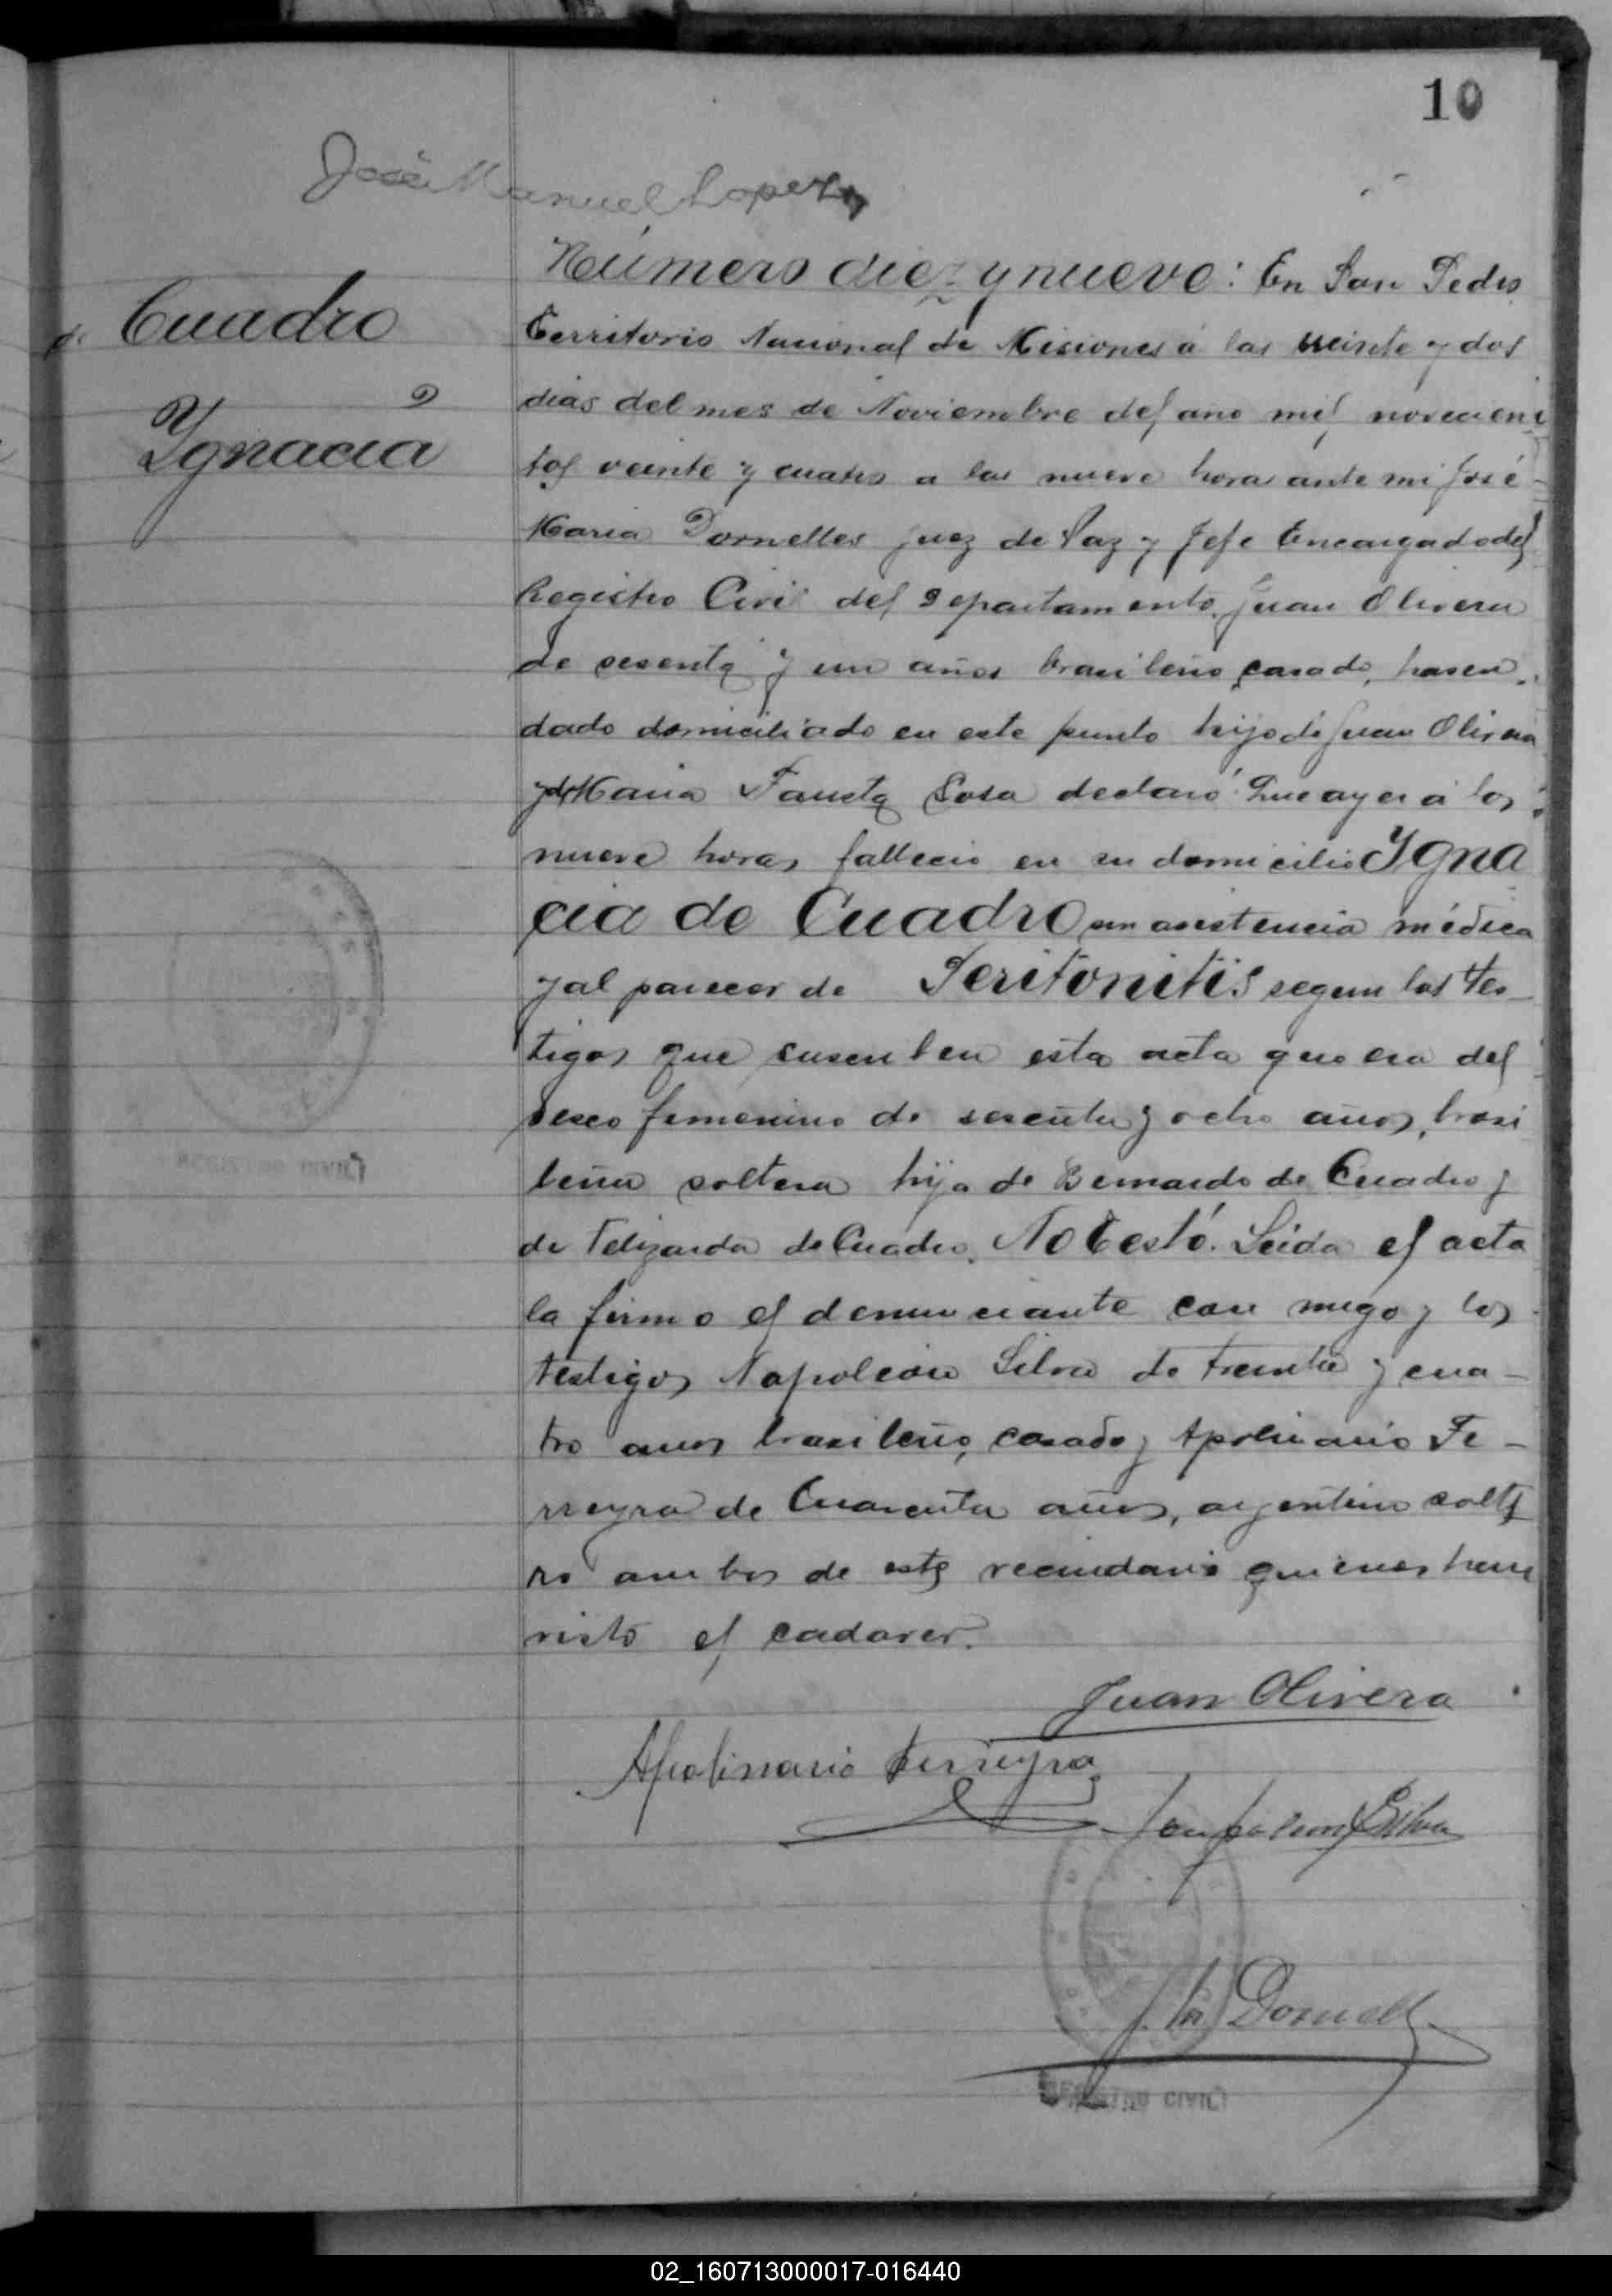 10
José Manuel Lopez
Número diez y nueve: En San Pedro
de Cuadro
Territorio Nacional de Misiones á los veinte y dos
dias del mes de Noviembre del año mil novecien
Ygnacia
tos veinte y cuatro a las nueve horas ante mi José
Maria Dornelles Juez de Paz y Jefe Encargado del
Registro Civil del Departamento, Juan Olivera
de sesenta y un años brasileño, casado, hasen
dado domiciliado en este punto hijo de Juan Olivera
y de Maria Fausta Sosa declaró: Que ayer á las
nueve horas fallecio en su domicilio Ygna
cia de Cuadro sin asistencia médica
y al parecer de Peritonitis segun los tes-
tigos que suscriben esta acta que era del
sexo femenino de sesenta y ocho años, brasi
leña soltera hija de Bernardo de Cuadro y
de Felizarda de Cuadro. No testó. Leida el acta
la firmo el denunciante con migo y los
testigos Napoleón Silva de treinta y cua-
tro años brasileño, casado y Apolinario Fe-
rreyra de Cuarenta años, argentino solte
ro ambos de este vecindario quienes han
visto el cadaver.
Juan Olivera
Apolinario Ferreyra
Napoleon Silva
J. M. Dornelles
REGISTRO CIVIL
02_160713000017-016440